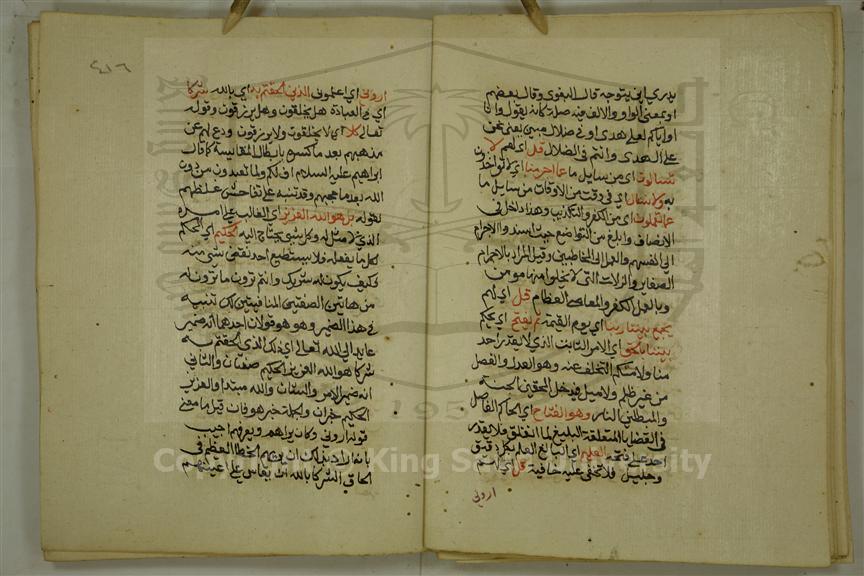 يدري اين يتوجه قال البغوي وقال بعضهم
او بمعنى الواو والالف فيه صلة كانه يقول وانا
واياكم لعلى هدى او في ضلال مبين يعني نحن
على الهدى وانتم في الضلال قل اي لهم لا
تسألون اي من سايل ما عما اجرمنا اي
به ولا نسأل اي في وقت من الاوقات من سايل ما
عما تعملون اي من الكفر والتكذيب وهذا ادخل في
الانصاف وابلغ من التواضع حيث اسند والاجرام
الى انفسهم والعمل الى المخاطبين وقيل المراد بالاجرام
الصغاير والزلات التي لا يخلو منها مومن
وبالعمل الكفر والمعاصي العظام قل اي لهم
يجمع بيننا ربنا اي يوم القيمة ثم يفتح اي يحكم
بيننا بالحق اي الامر الثابت الذي لا يقدر احد
منا ولا منكم التخلف عنه وهو العدل والفصل
من غير ظلم ولا ميل فيدخل المحقين الجنة
والمبطلين النار وهو الفتاح اي الحاكم الفاصل
في القضايا المتعلقة البليغ لما انغلق فلا يقدر
احد على فتحه العليم اي البالغ العلم بكل دقيق
وجليل فلا تخفى عليه خافية قل اي لهم
اروني
٤١٦
اروني اي اعلموني الذين الحقتم به اي بالله شركا
اي في العبادة هل يخلقون وهل يرزقون وقوله
تعالى كلا اي لا يخلقون ولا يرزقون ردع لهم عن
مذهبهم بعد ما كسره بابطال المقايسة كما قال
ابراهيم عليه السلام اف لكم ولما تعبدون من دون
الله بعد ما حجهم وقد نبه على تفاحش غلطهم
بقوله بل هو الله العزيز اي الغالب على امره
الذي لا مثل له وكل شي محتاج اليه الحكيم اي المحكم
لكل ما يفعله فلا يستطيع احد نقض شي منه
فكيف يكون له شريك وانتم ترون ما ترون له
من هاتين الصفتين المنافيتين لذلك تنبيه
في هذا الضمير وهو هو قولان احدهما انه ضمير
عايد الى الله تعالى اي ذلك الذي الحقتم به
شركا هو الله العزيز الحكيم صفتان والثاني
انه ضمير الامر والشان والله مبتدا والعزيز
الحكيم خبران والجملة خبر هو فان قيل ما معنى
قوله اروني وكان يراهم ويعرفهم اجيب
بانه اراد بذلك ان يريهم الخطا العظيم في
الحاق الشركا بالله وان يقاس على اعينهم
Copyright © King Saud University
1957